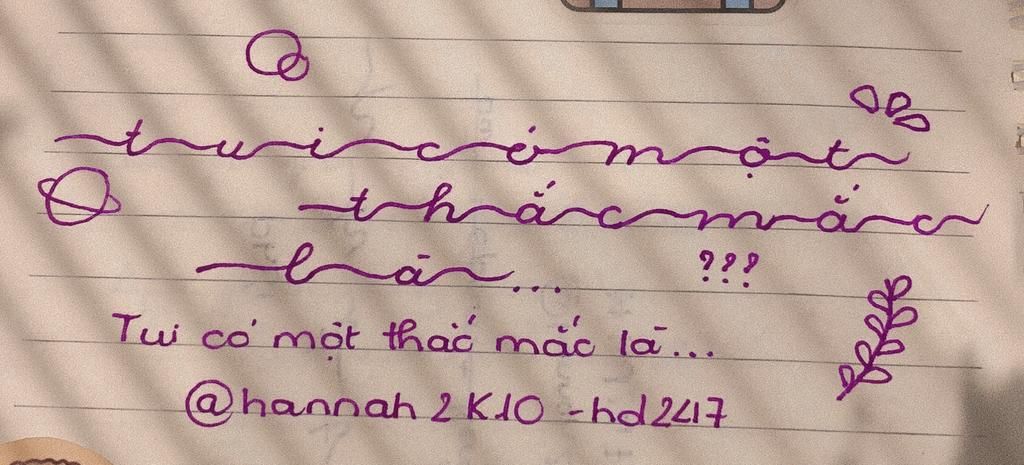 tui có một
thắc mắc
là... ???
Tui có một thắc mắc là...
@hannah2K10-hd2417